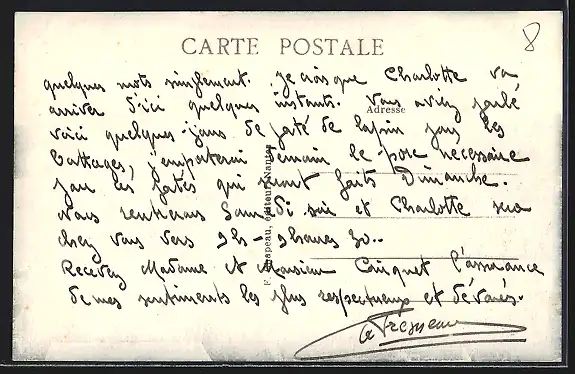 8
CARTE POSTALE
quelques mots simplement. Je crois que Charlotte va
arriver d'ici quelques instants. Vous aviez parlé
Adresse
voici quelques jours de pâté de lapin pour les
battages, j'emporterai demain le porc nécessaire
pour les pâtés qui seront faits Dimanche.
Nous rentrerons Samedi soir et Charlotte sera
chez vous vers 9h - 9heures 30..
Recevez Madame et Monsieur l'assurance
de mes sentiments les plus respectueux et dévoués.
F. Chapeau, éditeur, Nantes